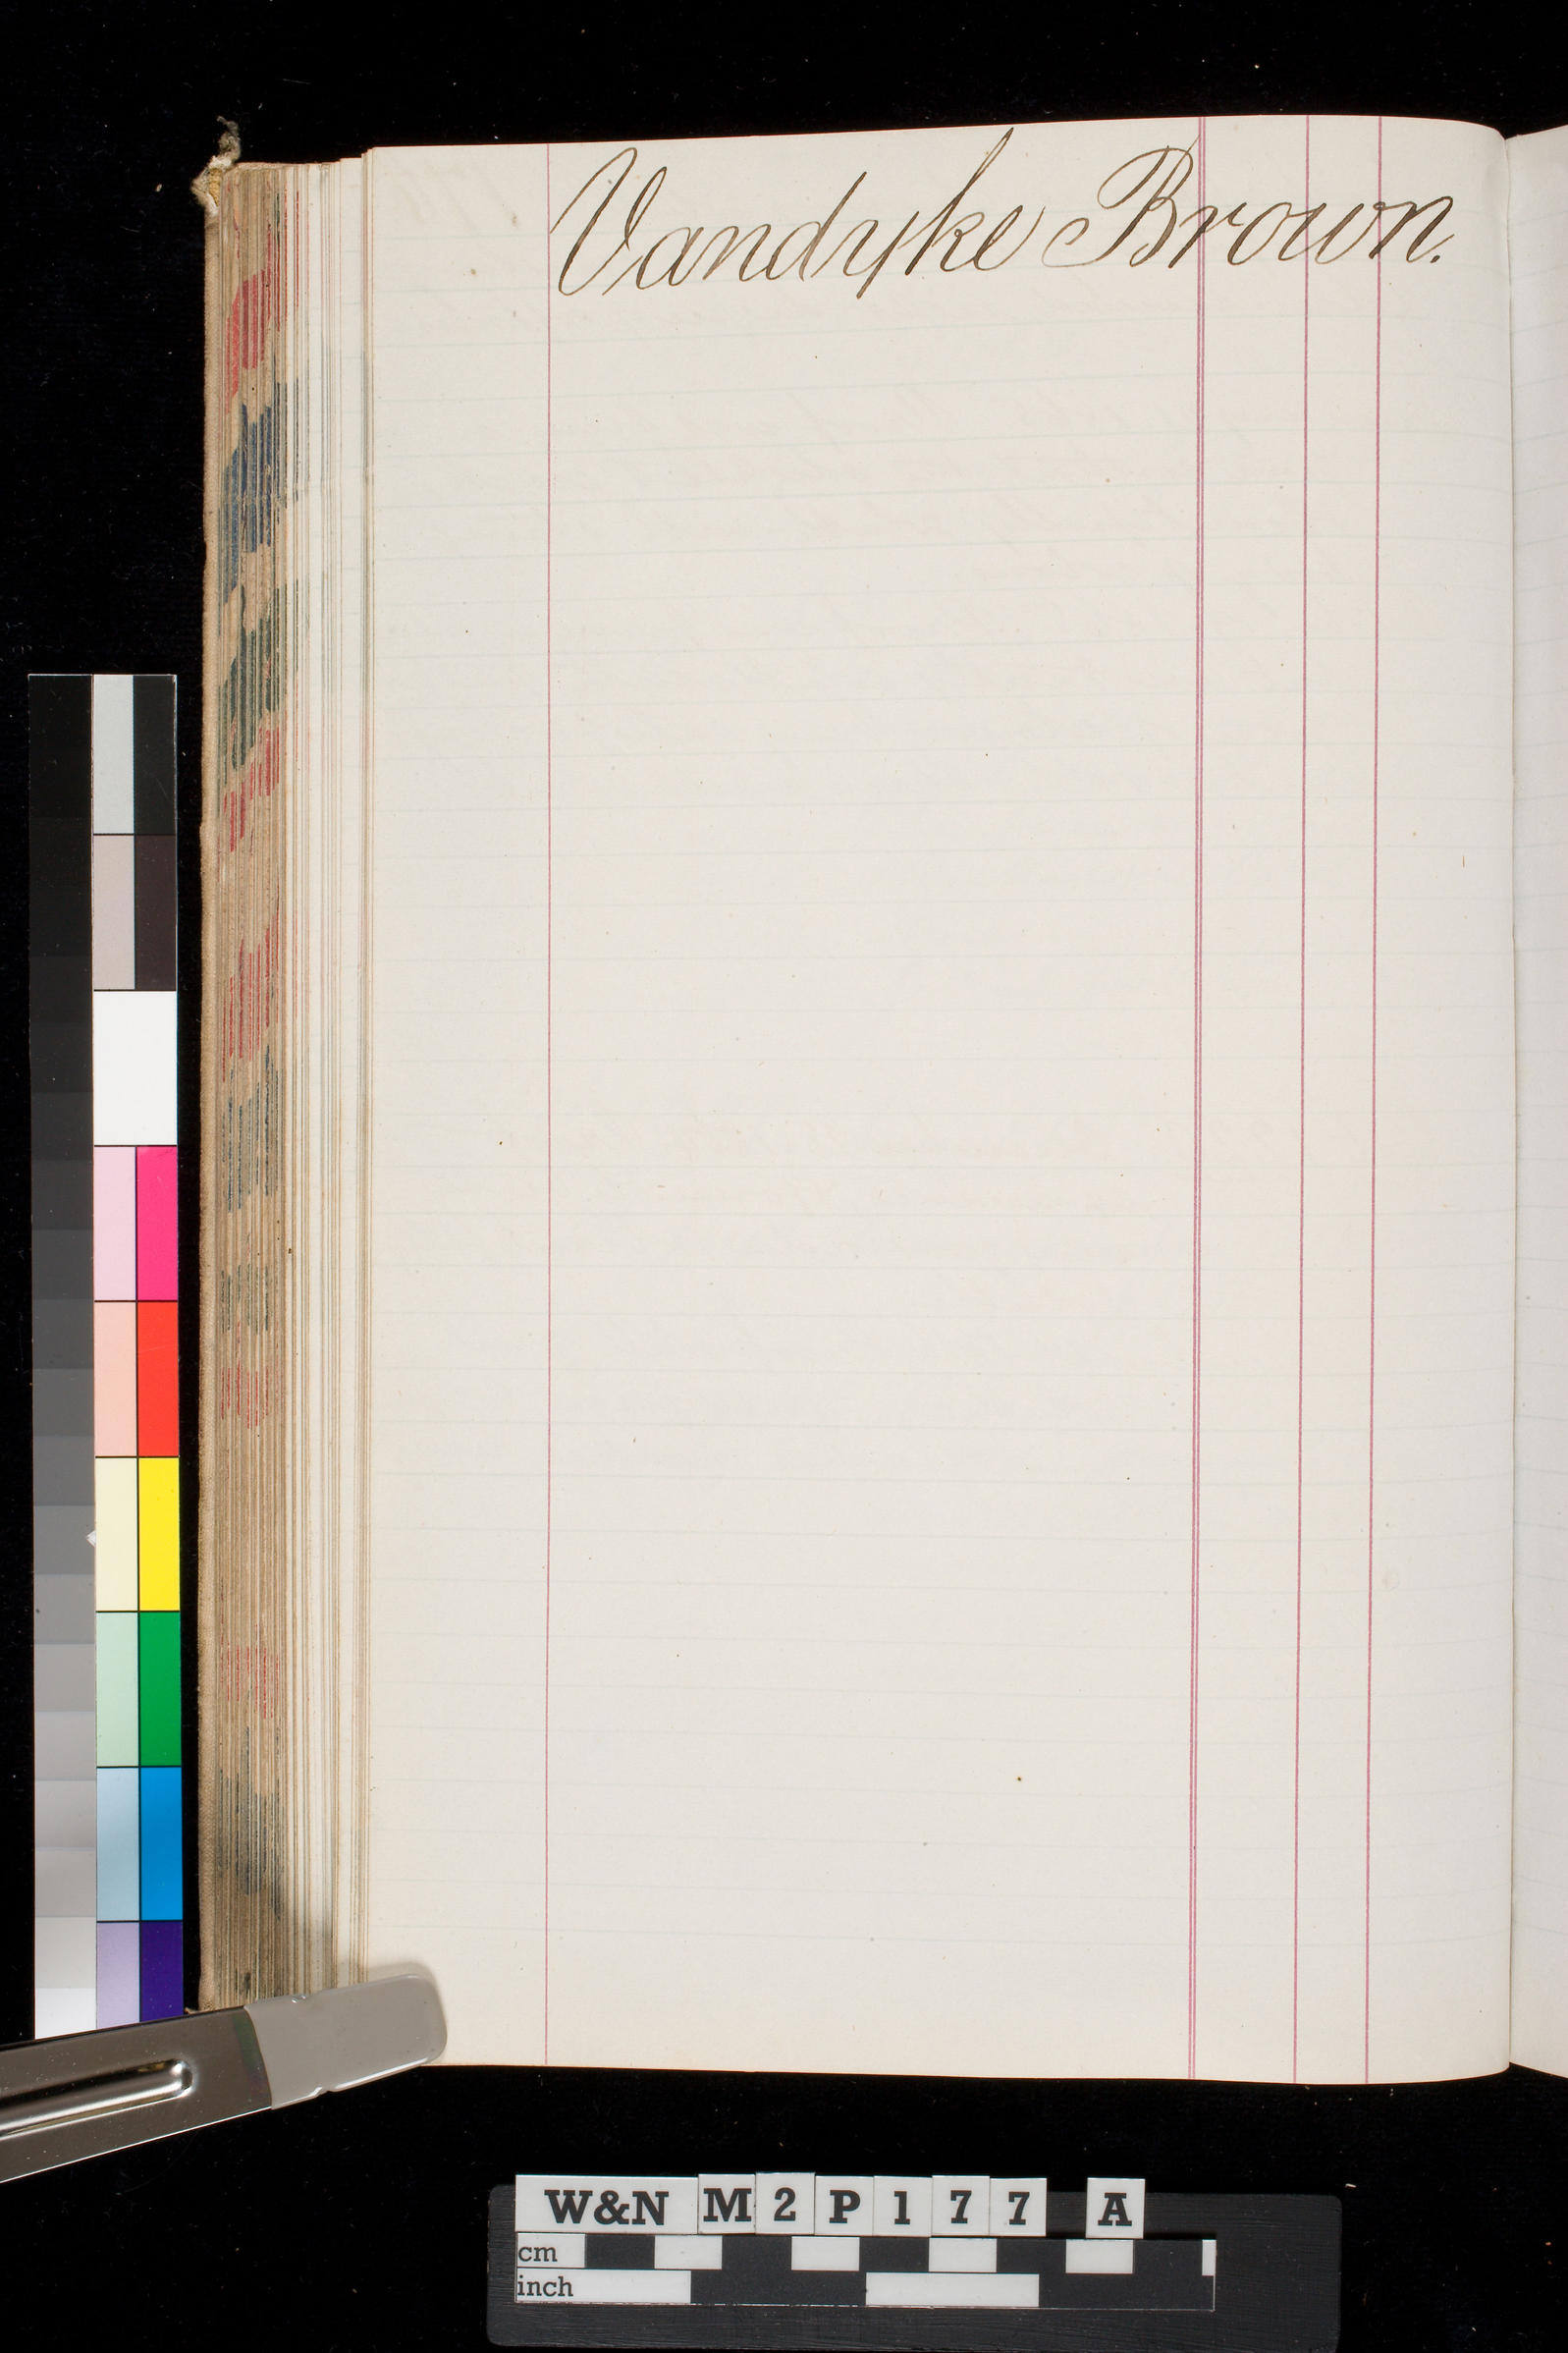 Vandyke Brown.
W&N M2P177 A
cm
inch